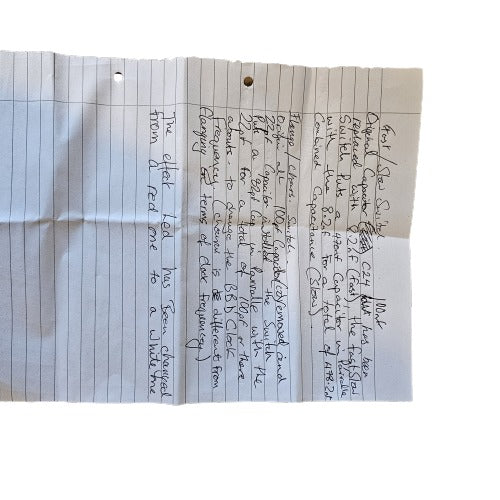 Fast / Slow Switch 100nf
Original Capacitor C24 has been
replaced with 8.2nf (Fast) the Fast/Slow
Switch Puts a 470nf Capacitor in Parralle
with the 8.2f For a total of 478.2nf
Combined Capacitance (Slow).
Flange / Chorus. Switch
Original 100pf Capacitor removed and
22pf Capacitor installed the Switch
Puts a Cap in Parralle with the
22pf for a total of 100pf or there
abouts to change the BBD Clock
Frequency (Chorus is different from
Flanging in terms of Clock Frequency)
The effect Led has Been changed
from a red one to a white one